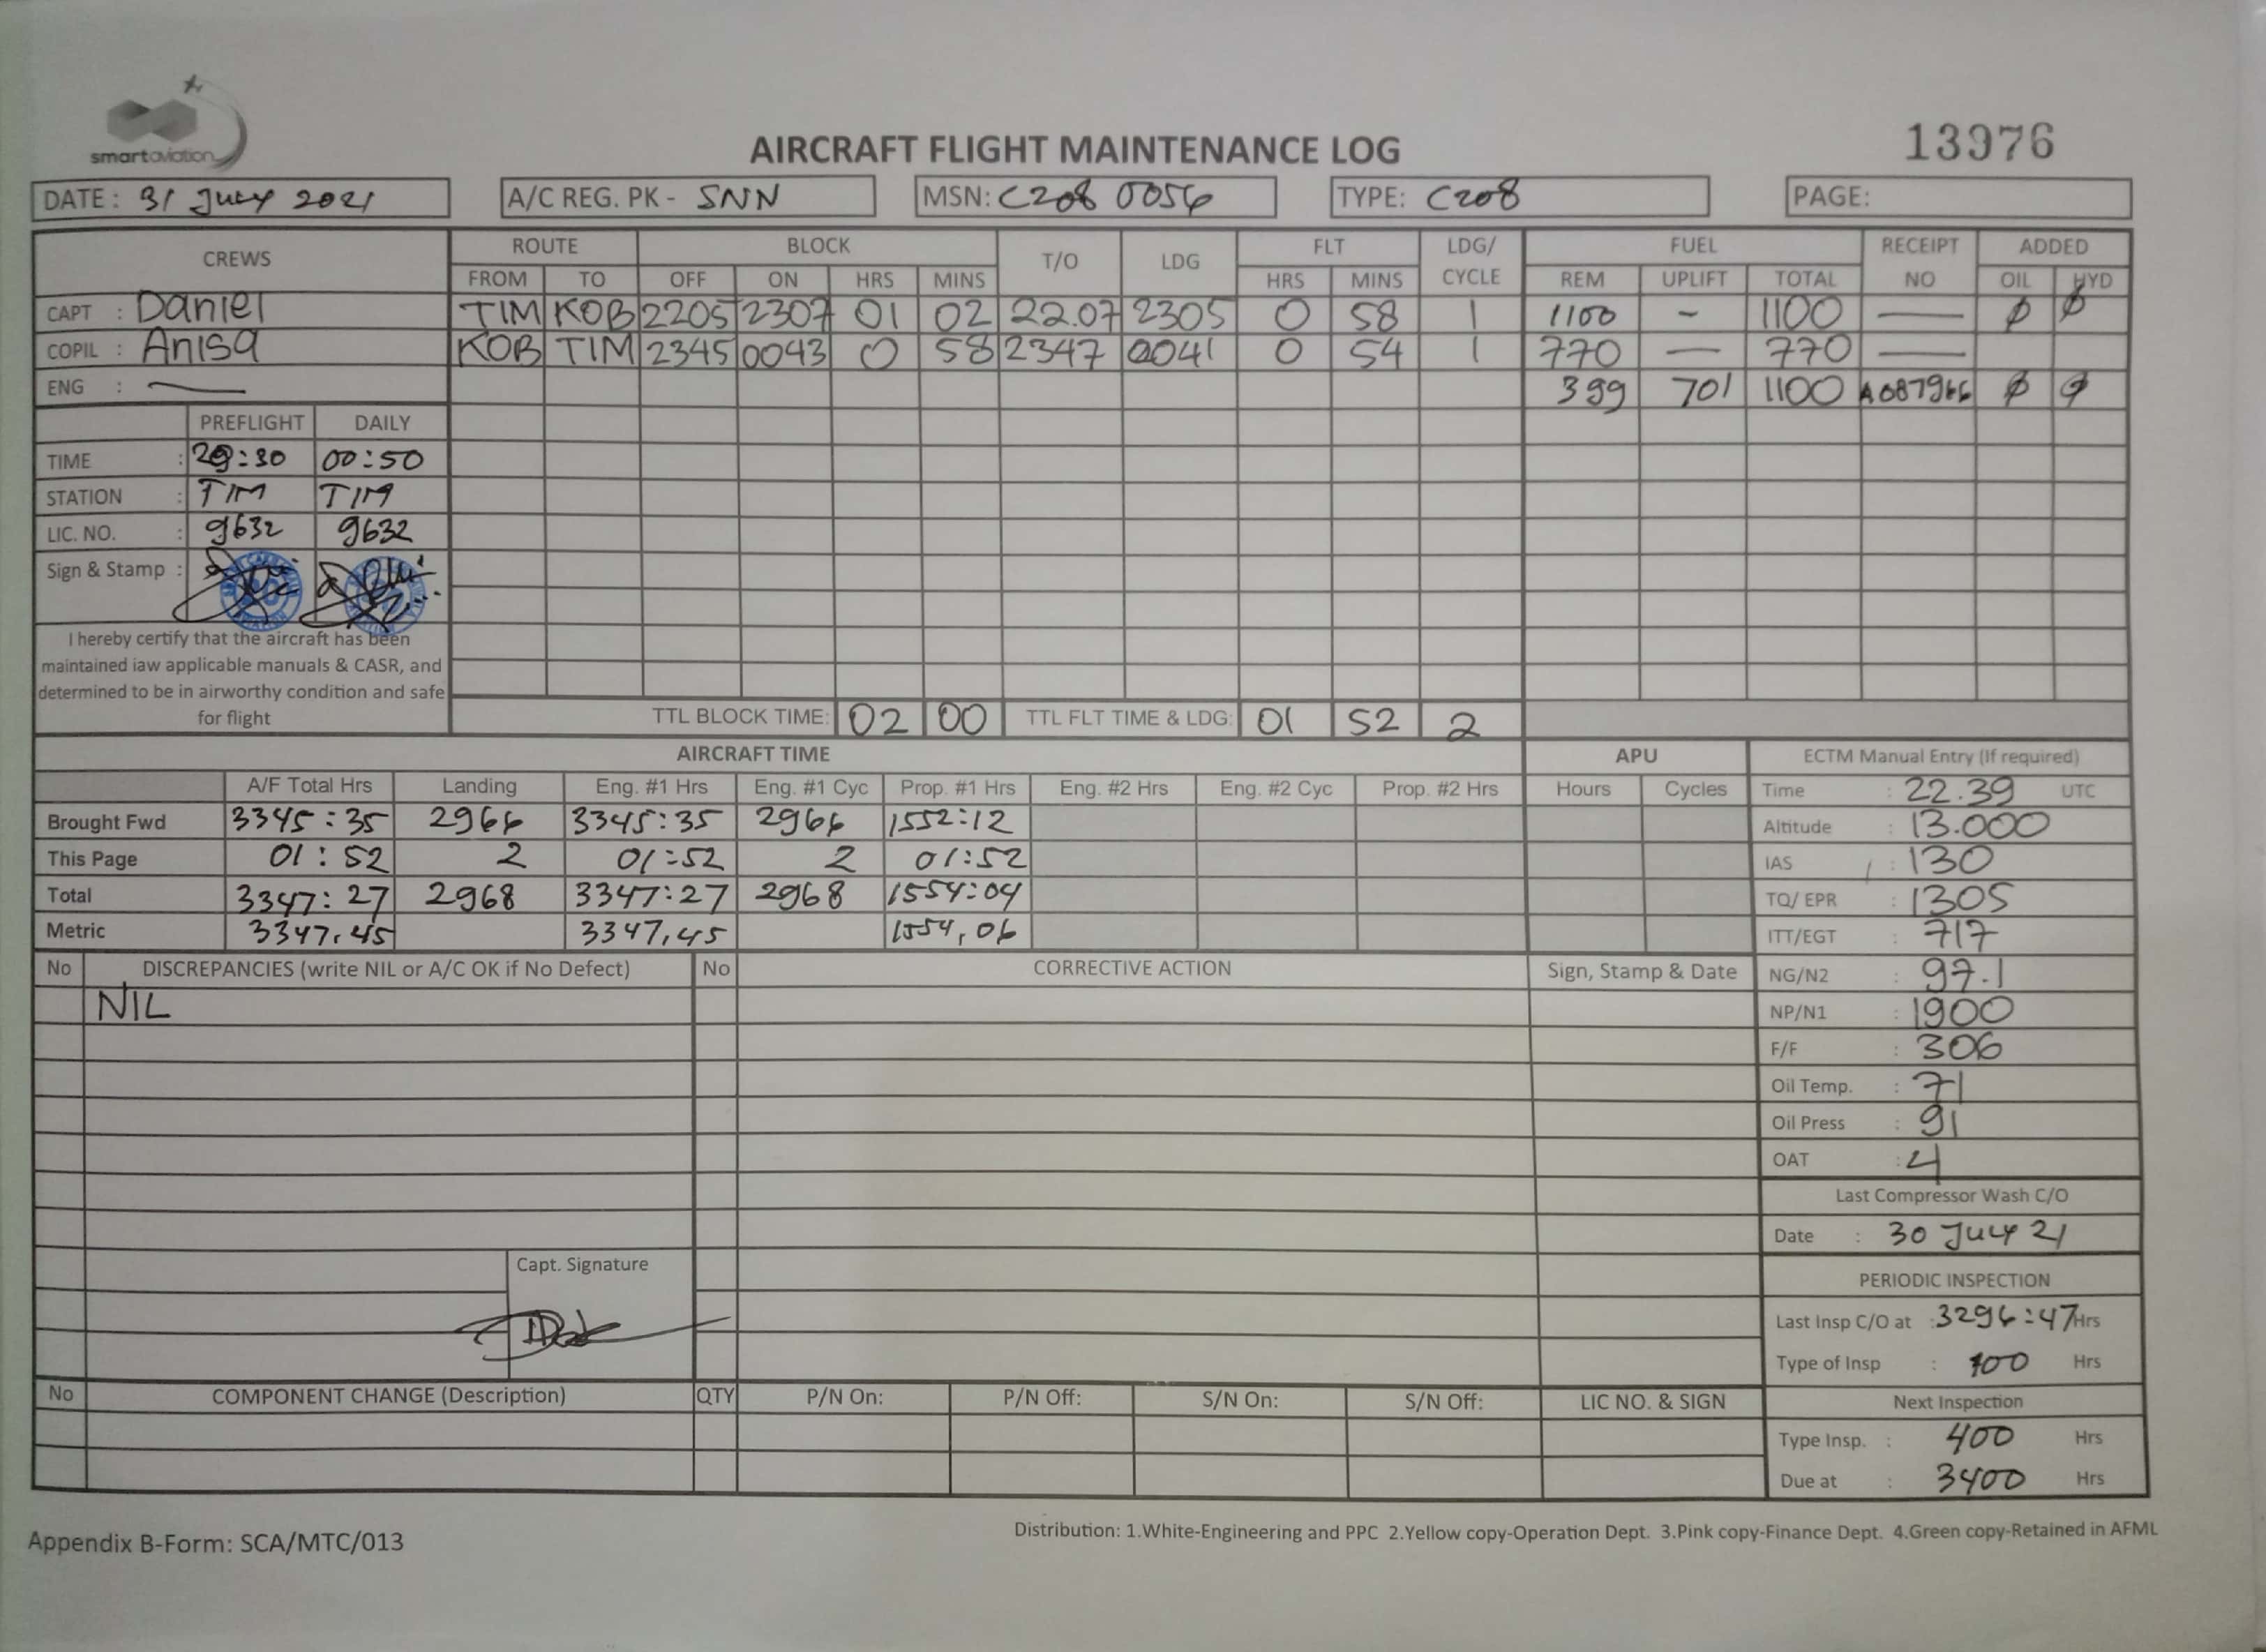 smartaviation
AIRCRAFT FLIGHT MAINTENANCE LOG
13976
DATE : 31 July 2021 A/C REG. PK - SNN MSN: C208 0056 TYPE: C208 PAGE:
CREWS ROUTE BLOCK T/O LDG FLT LDG/ CYCLE FUEL RECEIPT NO ADDED
FROM TO OFF ON HRS MINS HRS MINS REM UPLIFT TOTAL OIL HYD
CAPT : Daniel TIM KOB 2205 2307 01 02 22.07 2305 0 58 1 1100 - 1100 — ø ø
COPIL : Anisa KOB TIM 2345 0043 0 58 2347 0041 0 54 1 770 — 770 —
ENG : — 399 701 1100 A087966 ø ø
PREFLIGHT DAILY
TIME : :30 00:50
STATION : TIM TIM
LIC. NO. : 9632 9632
Sign & Stamp :
I hereby certify that the aircraft has been
maintained iaw applicable manuals & CASR, and
determined to be in airworthy condition and safe
for flight
TTL BLOCK TIME: 02 00 TTL FLT TIME & LDG: 01 52 2
AIRCRAFT TIME APU
A/F Total Hrs Landing Eng. #1 Hrs Eng. #1 Cyc Prop. #1 Hrs Eng. #2 Hrs Eng. #2 Cyc Prop. #2 Hrs Hours Cycles
Brought Fwd 3345:35 2966 3345:35 2966 1552:12
This Page 01:52 2 01:52 2 01:52
Total 3347:27 2968 3347:27 2968 1554:04
Metric 3347,45 3347,45 1554,06
ECTM Manual Entry (If required)
Time : 22.39 UTC
Altitude : 13.000
IAS : 130
TQ/ EPR : 1305
ITT/EGT : 717
NG/N2 : 97.1
NP/N1 : 1900
F/F : 306
Oil Temp. : 71
Oil Press : 91
OAT : 4
Last Compressor Wash C/O
Date : 30 July 21
PERIODIC INSPECTION
Last Insp C/O at : 3296:47 Hrs
Type of Insp : 100 Hrs
Next Inspection
Type Insp. : 400 Hrs
Due at : 3400 Hrs
No DISCREPANCIES (write NIL or A/C OK if No Defect) No CORRECTIVE ACTION Sign, Stamp & Date
NIL
Capt. Signature
No COMPONENT CHANGE (Description) QTY P/N On: P/N Off: S/N On: S/N Off: LIC NO. & SIGN
Appendix B-Form: SCA/MTC/013
Distribution: 1.White-Engineering and PPC 2.Yellow copy-Operation Dept. 3.Pink copy-Finance Dept. 4.Green copy-Retained in AFML